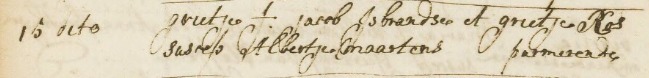 15 octo grietje f: jacob Isbrandse et grietje Kos
suscep Albertje maartens purmerende